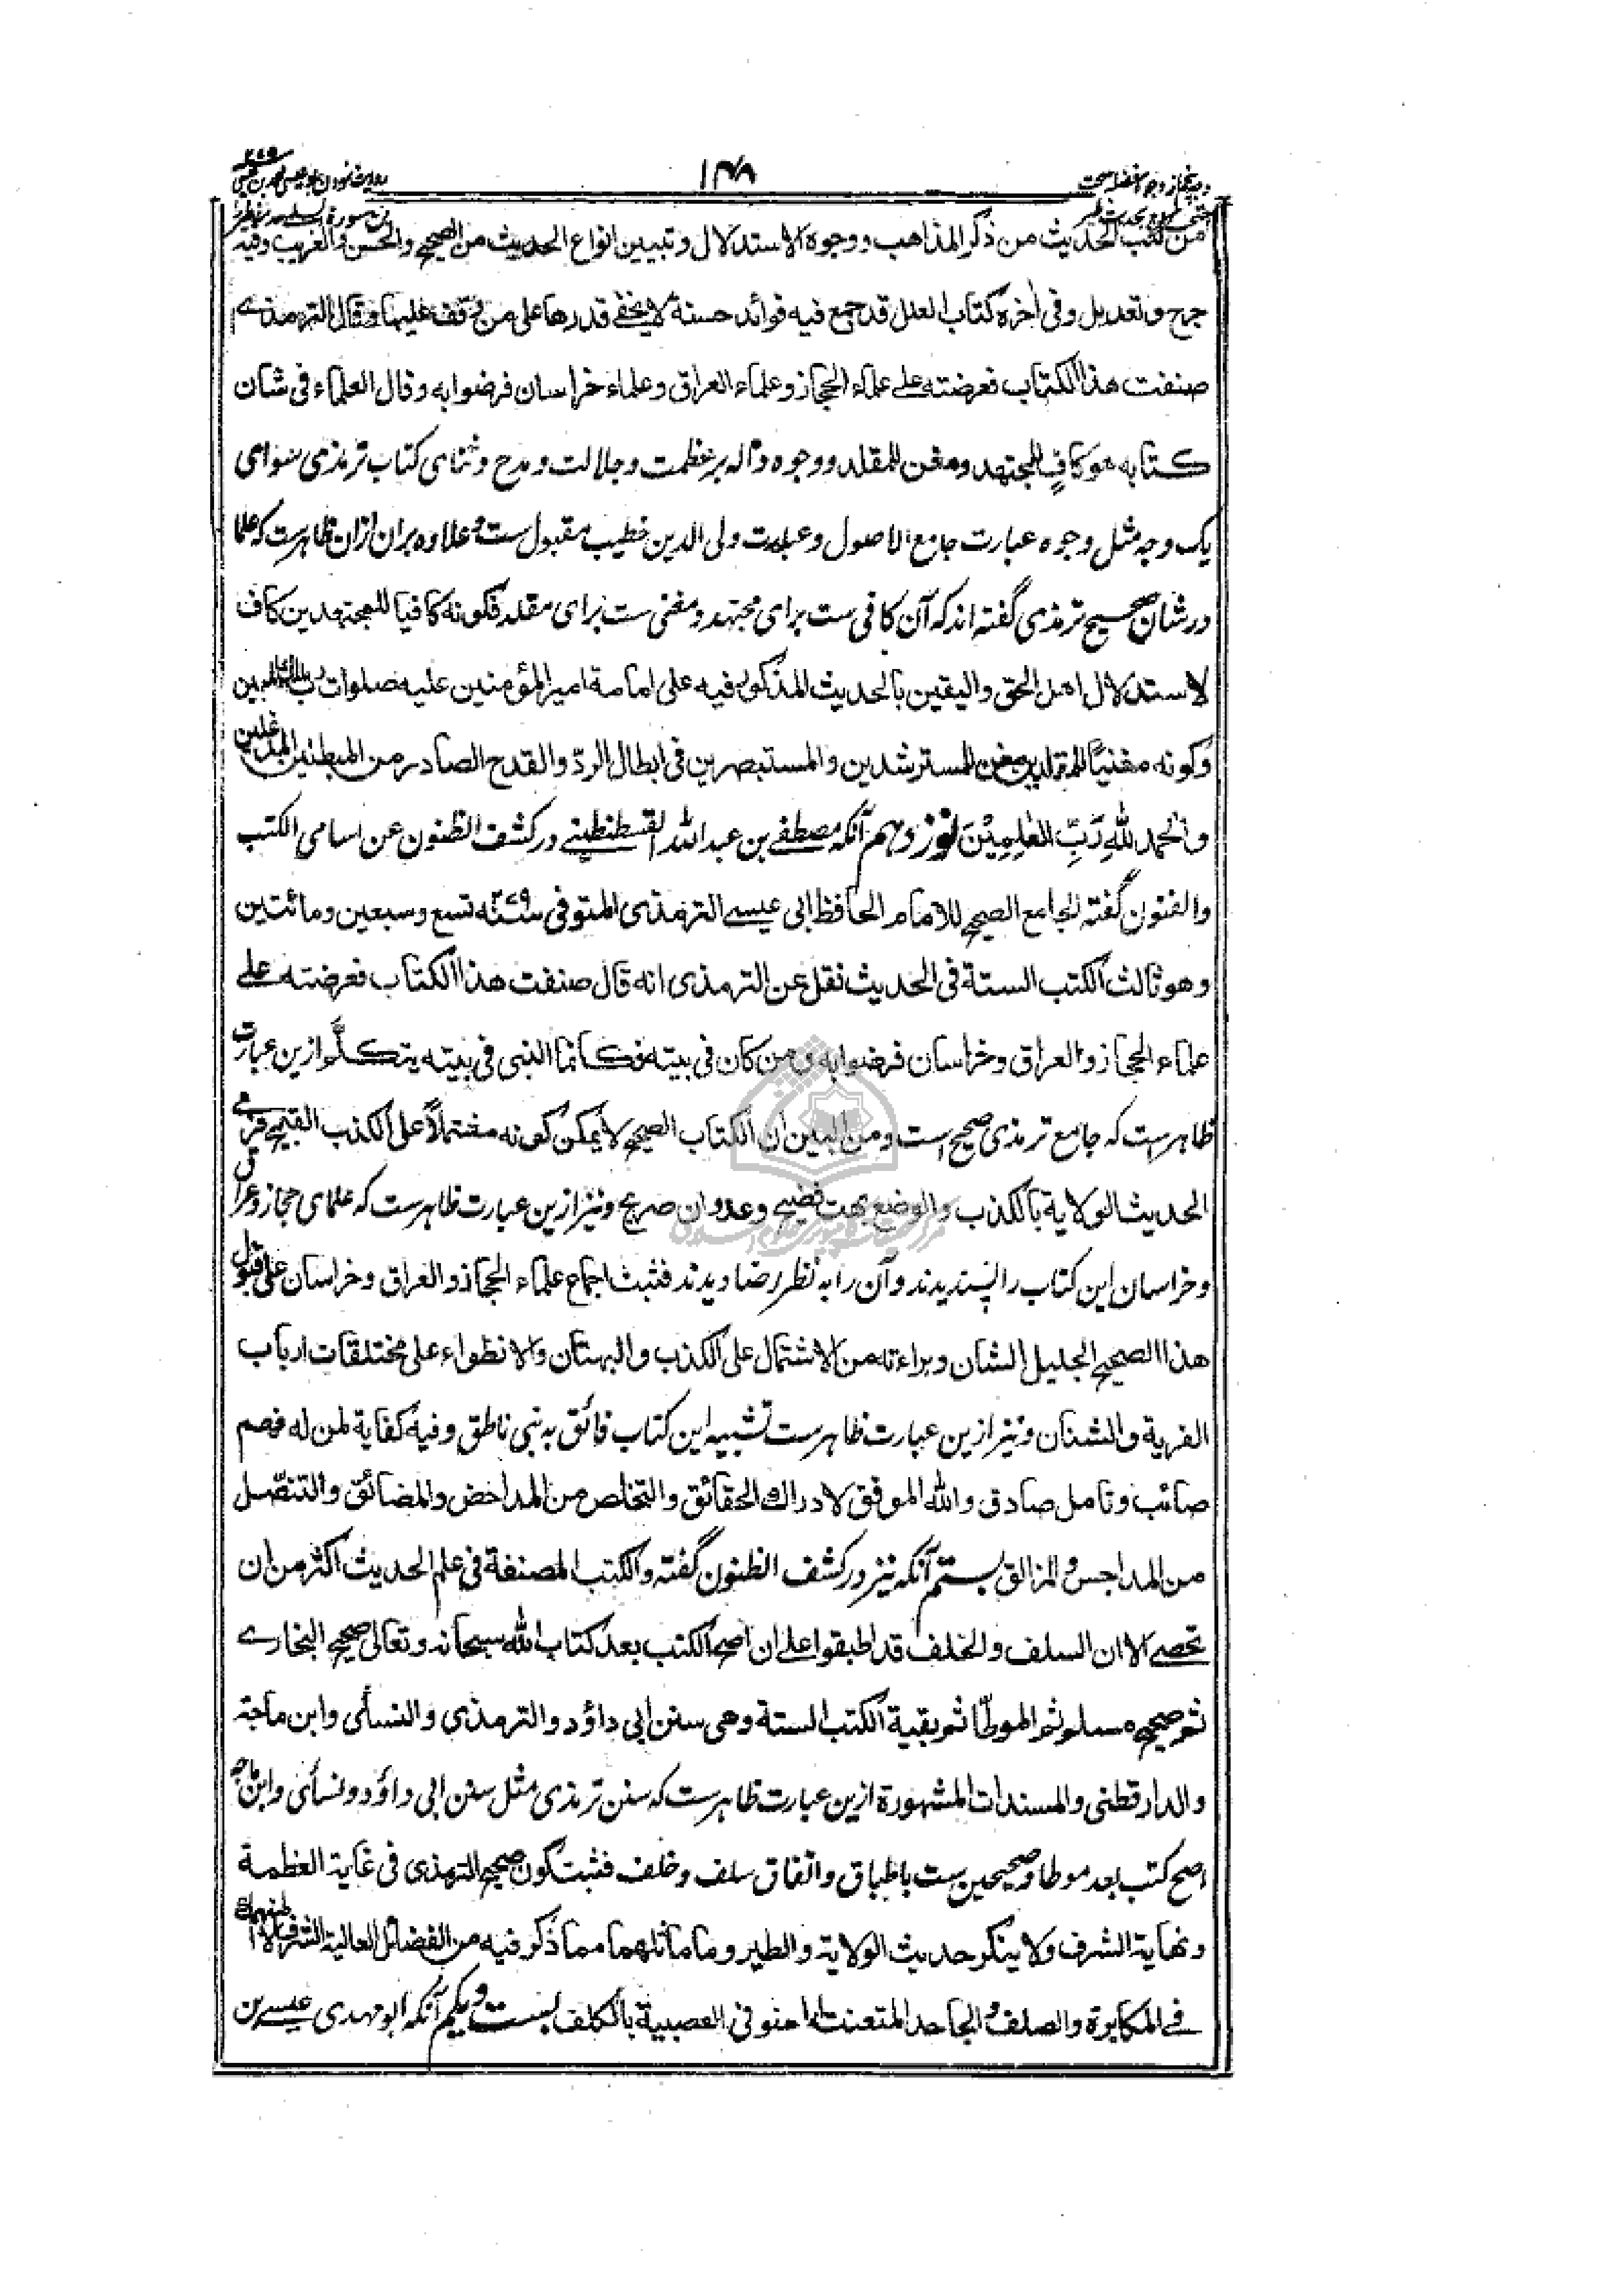 ۱۴۸
من كتب الحديث من ذكر المذاهب ووجوه الاستدلال وتبيين انواع الحديث من الصحيح والحسن والغريب وفيه
جرح وتعديل وفى اخره كتاب العلل قد جمع فيه فوائد حسنة لا يخفى قدرها على من وقف عليها وقال الترمذے
صنفت هذا الكتاب فعرضته على علماء الحجاز وعلماء العراق وعلماء خراسان فرضوا به وقال العلماء فى شان
كتابه هو كافٍ للمجتهد ومغن للمقلد ووجوه داله بر عظمت وجلالت ومدح وثناى كتاب ترمذى سواى
يک وجه مثل وجوه عبارت جامع الاصول وعبارت ولى الدين خطيب مقبول ست وعلاوه بران ازان ظاهرست كه علما
در شان صحيح ترمذى گفته اند كه آن كافى ست براى مجتهد ومغنى ست براى مقلد فكونه كافيا للمجتهدين كاف
لاستدلال اهل الحق واليقين بالحديث المذكور فيه على امامة امير المؤمنين عليه صلوات رب العالمين
وكونه مغنيًا للمقلدين مغن للمسترشدين والمستبصرين فى ابطال الردّ والقدح الصادر من المبطنين المدغلين
والحمد للهِ رَبِّ العٰلمِيْنَ نوزدهم آنكه مصطفے بن عبد الله القسطنطينے در كشف الظنون عن اسامى الكتب
والفنون گفته الجامع الصحيح للامام الحافظ ابى عيسے الترمذى المتوفى سنة ۲۷۹ تسع وسبعين ومائتين
وهو ثالث الكتب الستة فى الحديث نقل عن الترمذى انه قال صنفت هذا الكتاب فعرضته على
علماء الحجاز والعراق وخراسان فرضوا به ومن كان فى بيته فكانما النبى فى بيته يتكلّم ازين عبارت
ظاهرست كه جامع ترمذى صحيح است ومن البين ان الكتاب الصحيح لا يمكن كونه مشتملاً على الكذب القبيح فرمى
الحديث الولاية بالكذب والوضع بهت فضيح وعدوان صريح ونيز ازين عبارت ظاهرست كه علماى حجاز وعراق
وخراسان اين كتاب را پسنديدند وآن را به نظر رضا ديدند فثبت اجماع علماء الحجاز والعراق وخراسان على قبول
هذا الصحيح الجليل الشان وبراءته من الاشتمال على الكذب والبهتان والانطواء على مختلقات ارباب
الفرية والشنان ونيز ازين عبارت ظاهرست تشبيه اين كتاب فائق به نبى ناطق وفيه كفاية لمن له فهم
صائب وتامل صادق والله الموفق لادراك الحقائق والتخلص من المداحض والمضائق والتنصّل
من المداجس والمزالق بستم آنكه نيز در كشف الظنون گفته والكتب المصنفة فى علم الحديث اكثر من ان
تحصے الا ان السلف والخلف قد اطبقوا على ان اصح الكتب بعد كتاب الله سبحانه وتعالى صحيح البخارے
ثم صحيح مسلم ثم الموطّا ثم بقية الكتب الستة وهى سنن ابى داؤد والترمذى والنسأى وابن ماجة
والدارقطنى والمسندات المشهورة ازين عبارت ظاهرست كه سنن ترمذى مثل سنن ابى داؤد ونسأى وابن ماجه
اصح كتب بعد موطا وصحيحين ست باطباق واتفاق سلف وخلف فثبت كون صحيح الترمذى فى غاية العظمة
ونهاية الشرف ولا ينكر حديث الولاية والطير وما ماثلهما مما ذكر فيه من الفضائل العالية الشرف الا المنهمك
فے المكابرة والصلف والجاحد المتعنت فى العصبية بالكلف بست ويكم آنكه ابو مهدى عيسے بن